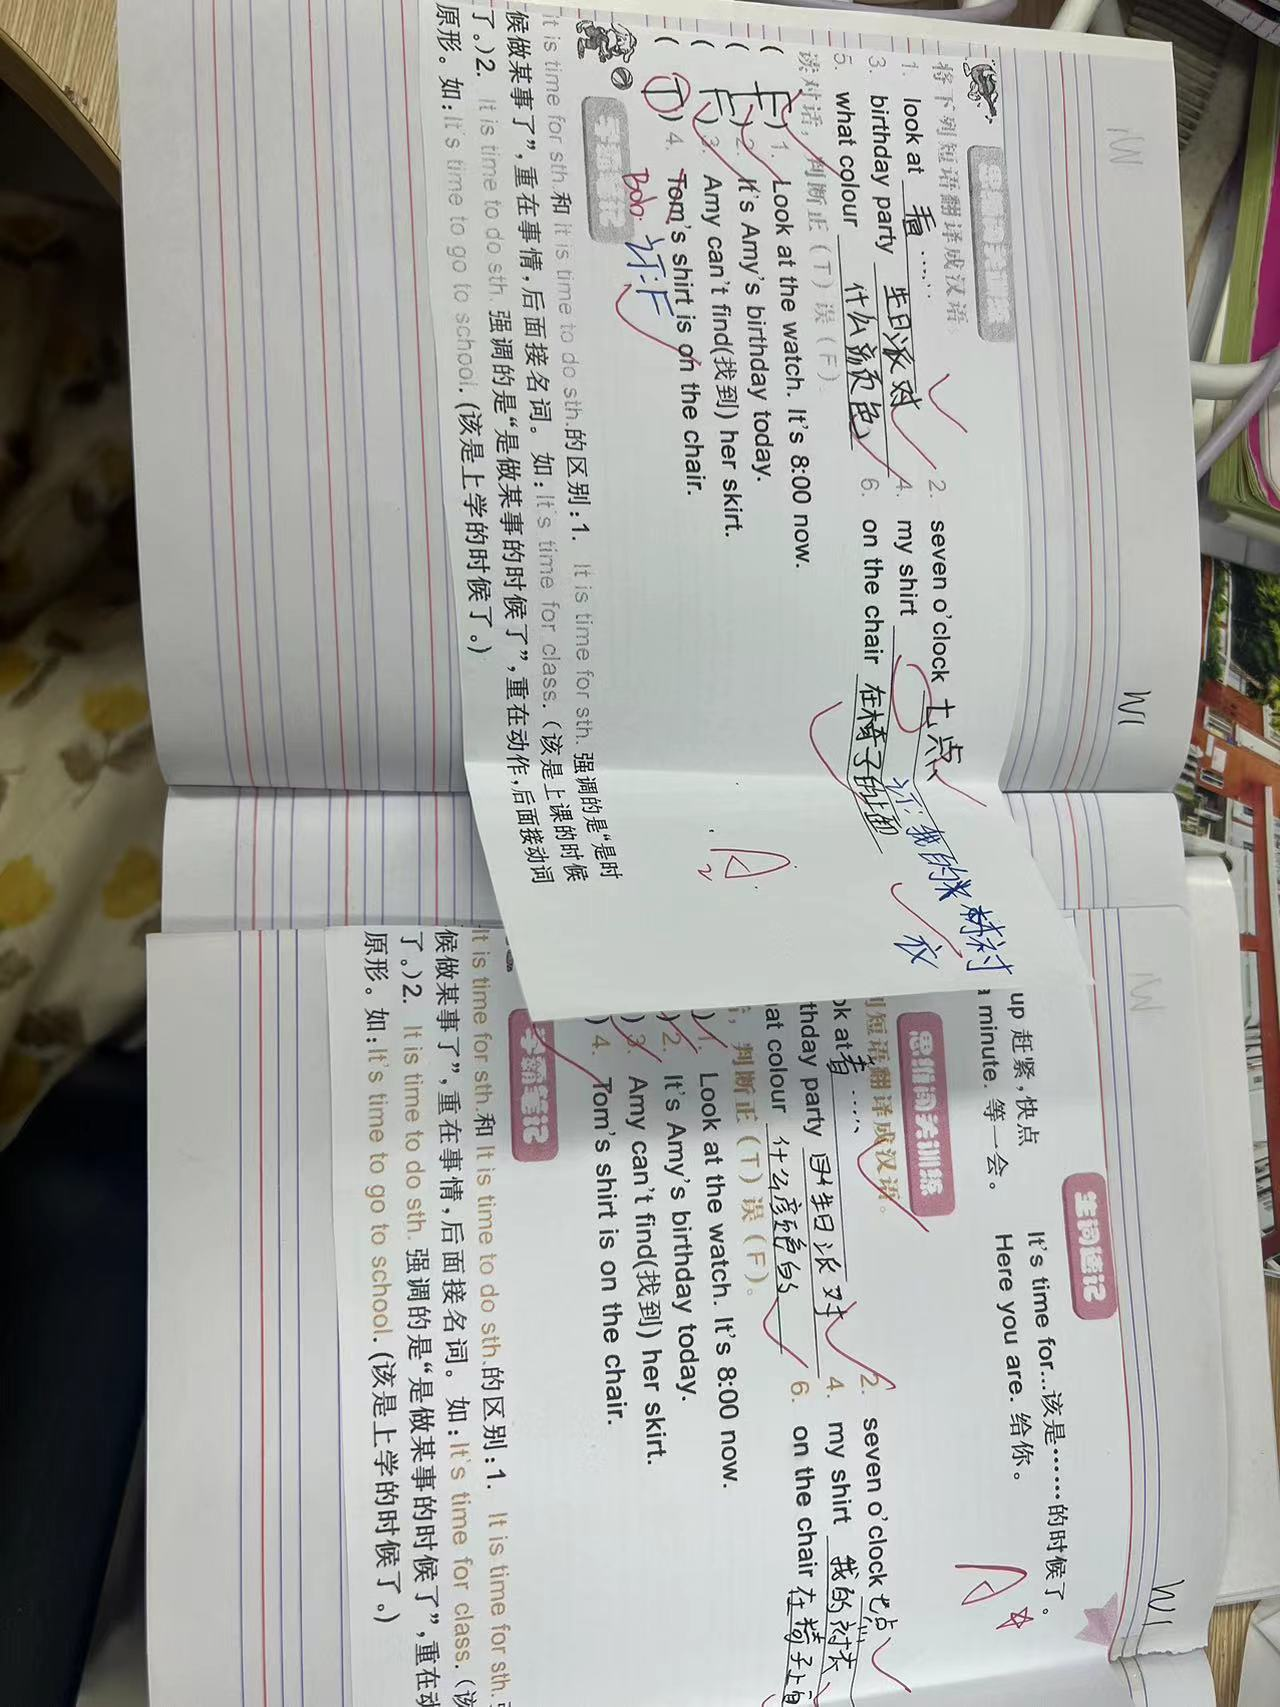 W
W1
思维闯关训练
将下列短语翻译成汉语。
1. look at 看…… 2. seven o'clock 七点
3. birthday party 生日派对 4. my shirt
订:我的衬衣
5. what colour 什么颜色 6. on the chair 在椅子的上面
读对话,判断正(T)误(F)。
(F) 1. Look at the watch. It's 8:00 now.
(F) 2. It's Amy's birthday today.
(F) 3. Amy can't find(找到) her skirt.
(T) 4. Tom's shirt is on the chair.
Bob 订:F
A
2
学霸笔记
it is time for sth.和 it is time to do sth.的区别:1. It is time for sth. 强调的是“是时
候做某事了”,重在事情,后面接名词。如:It's time for class.(该是上课的时候
了。)2. It is time to do sth. 强调的是“是做某事的时候了”,重在动作,后面接动词
原形。如:It's time to go to school.(该是上学的时候了。)
W
W1
全词速记
It's time for...该是……的时候了。
up 赶紧,快点 Here you are. 给你。
minute. 等一会。
A
思维闯关训练
列短语翻译成汉语。
ok at 看…… 2. seven o'clock 七点
thday party 生日派对 4. my shirt 我的衬衣
at colour 什么颜色的 6. on the chair 在椅子上面
,判断正(T)误(F)。
) 1. Look at the watch. It's 8:00 now.
) 2. It's Amy's birthday today.
) 3. Amy can't find(找到) her skirt.
) 4. Tom's shirt is on the chair.
学霸笔记
It is time for sth.和 It is time to do sth.的区别:1. It is time for sth.
候做某事了”,重在事情,后面接名词。如:It's time for class.(该
了。)2. It is time to do sth. 强调的是“是做某事的时候了”,重在动
原形。如:It's time to go to school.(该是上学的时候了。)